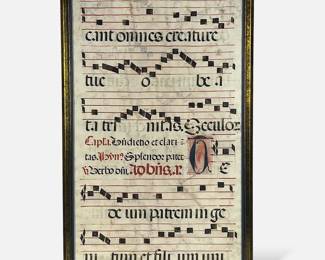 cant omnes creature
tue o be a
ta tri nitas. Seculor
Capla. Bñdictio et clari
tas. Hyñ9 Splendor pater
Verbo dñi. D e
de um patrem inge
ni tum et fili um uni